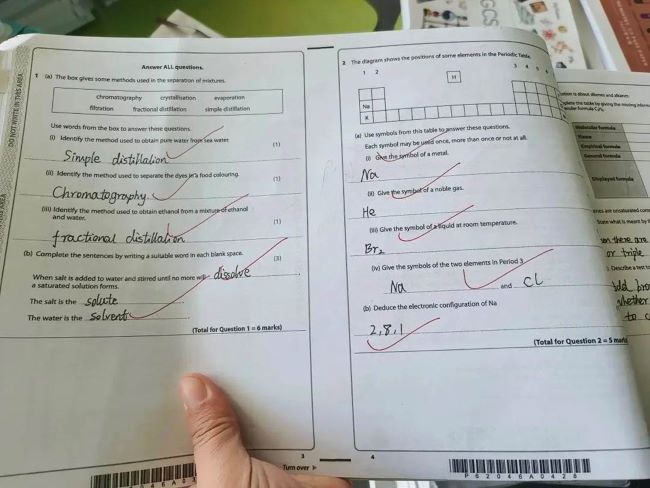 DO NOT WRITE IN THIS AREA
Answer ALL questions.
1 (a) The box gives some methods used in the separation of mixtures.
chromatography crystallisation evaporation
filtration fractional distillation simple distillation
Use words from the box to answer these questions.
(i) Identify the method used to obtain pure water from sea water.
(1)
Simple distillation
(ii) Identify the method used to separate the dyes in a food colouring.
(1)
Chromatography.
(iii) Identify the method used to obtain ethanol from a mixture of ethanol
and water.
(1)
fractional distillation
(b) Complete the sentences by writing a suitable word in each blank space.
(3)
When salt is added to water and stirred until no more will dissolve
a saturated solution forms.
The salt is the solute
The water is the Solvent
(Total for Question 1 = 6 marks)
3
Turn over
2 The diagram shows the positions of some elements in the Periodic Table.
1 2
3 4
H
Na
K
(a) Use symbols from this table to answer these questions.
Each symbol may be used once, more than once or not at all.
(i) Give the symbol of a metal.
Na
(ii) Give the symbol of a noble gas.
He
(iii) Give the symbol of a liquid at room temperature.
Br2
(iv) Give the symbols of the two elements in Period 3.
Na and Cl
(b) Deduce the electronic configuration of Na
2,8,1
(Total for Question 2 = 5 marks)
4
P62046A0428
is about alkenes and alkanes.
table by giving the missing
Molecular formula
Name
Empirical formula
General formula
Displayed formula
are unsaturated
State what is meant by
there are
or triple
Describe a test
Add
whether
to